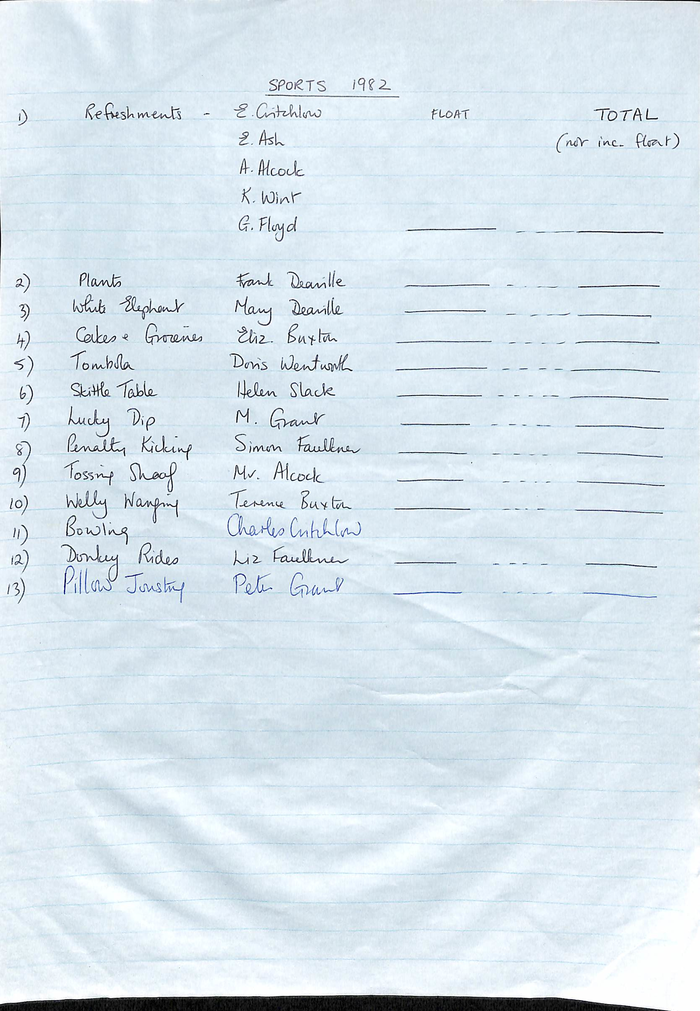 SPORTS 1982
1) Refreshments - E. Critchlow FLOAT TOTAL
E. Ash (not inc. float)
A. Alcock
K. Wint
G. Floyd
2) Plants Frank Deaville
3) White Elephant Mary Deaville
4) Cakes + Groceries Eliz. Buxton
5) Tombola Doris Wentworth
6) Skittle Table Helen Slack
7) Lucky Dip M. Grant
8) Penalty Kicking Simon Faulkner
9) Tossing Sheaf Mr. Alcock
10) Welly Wanging Terence Buxton
11) Bowling Charles Critchlow
12) Donkey Rides Liz Faulkner
13) Pillow Jousting Peter Grant